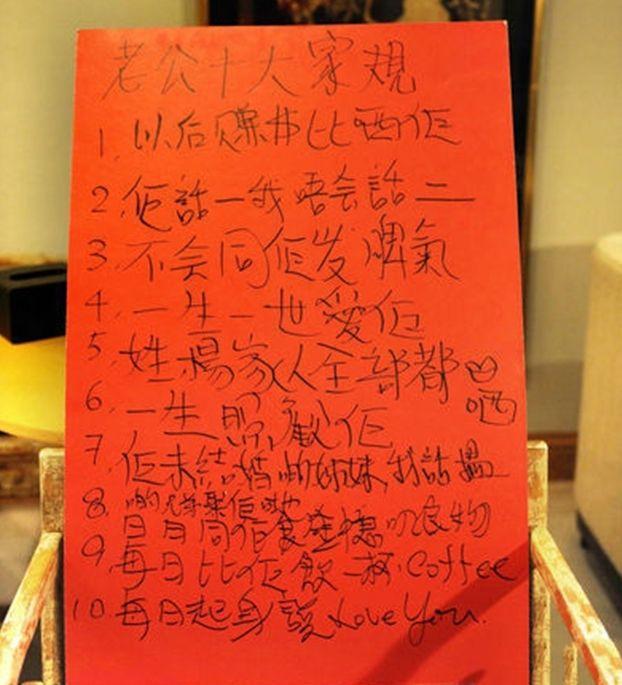 老公十大家規
1. 以后赚井比晒佢
2. 佢話一我唔会話二
3. 不会同佢发脾氣
4. 一生一也愛佢
5. 姓楊家人全部都 晒
6. 一生照顧佢
7. 佢未結婚的姐妹,我話
8. 日日同佢食 健
9. 每日比佢飲一杯Coffee
10. 每日起身說 Love You.